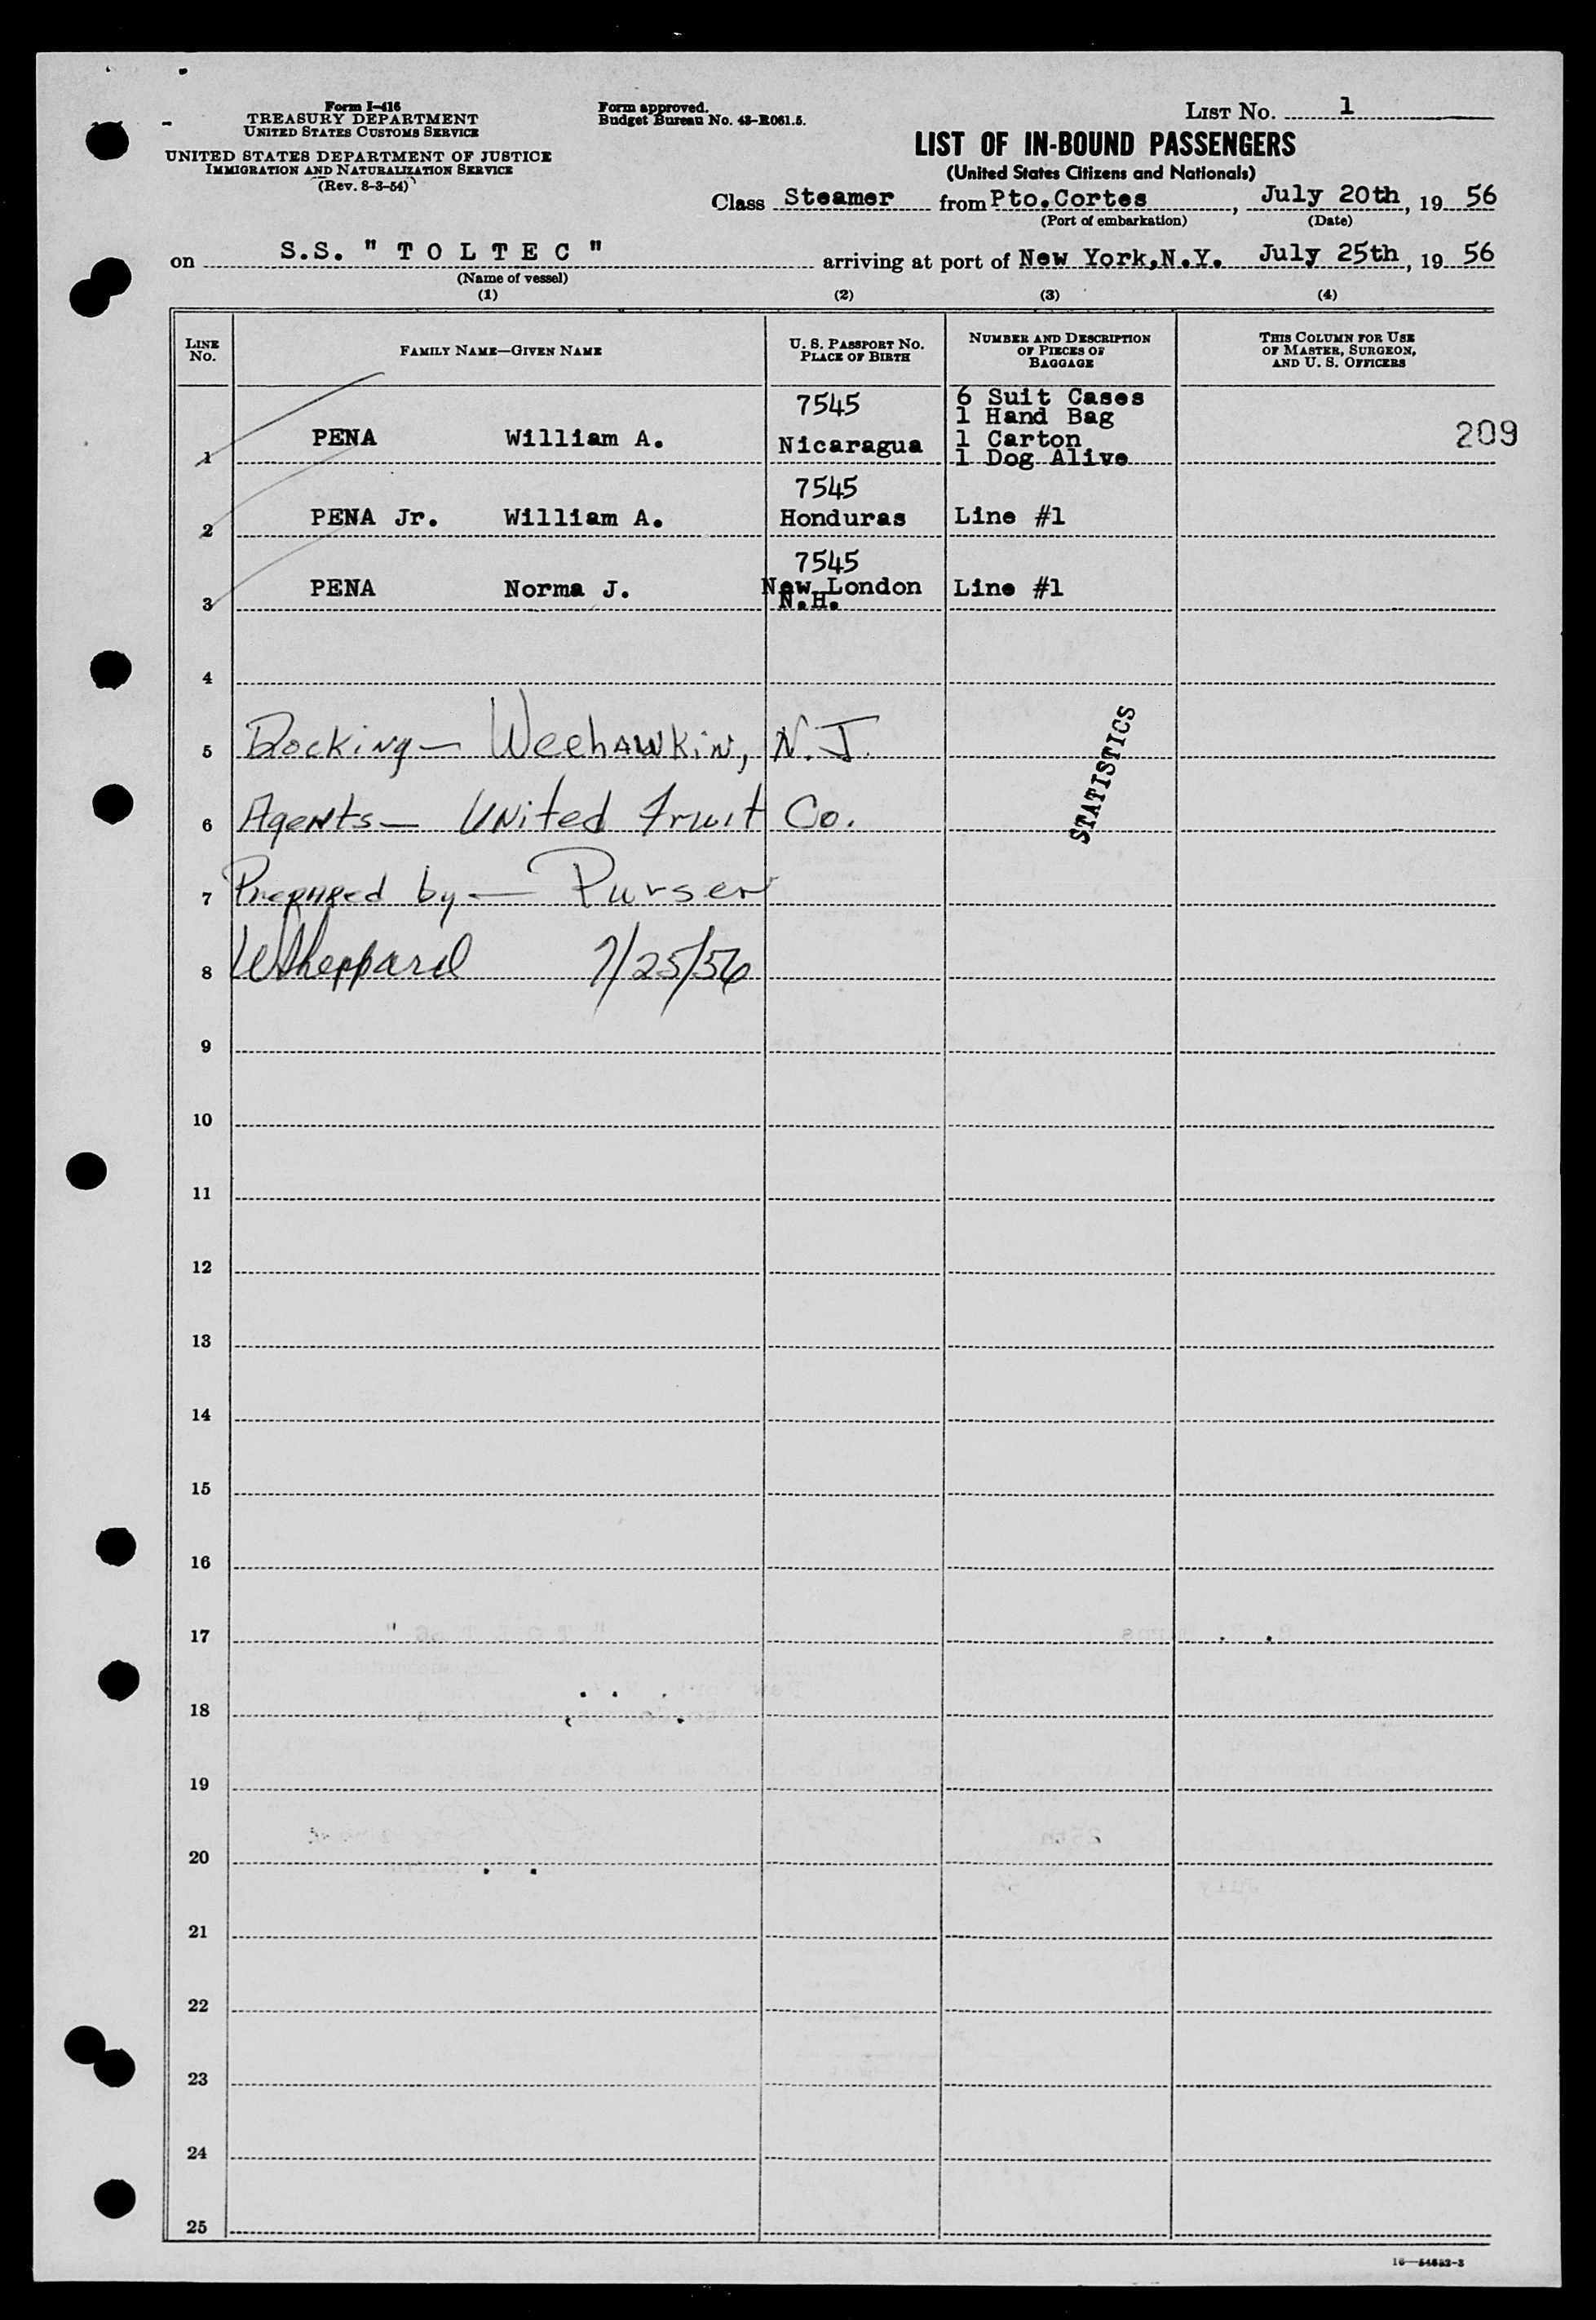 Form I-416
TREASURY DEPARTMENT
UNITED STATES CUSTOMS SERVICE
UNITED STATES DEPARTMENT OF JUSTICE
IMMIGRATION AND NATURALIZATION SERVICE
(Rev. 8-3-54)
Form approved.
Budget Bureau No. 43-R061.5.
LIST No. 1
LIST OF IN-BOUND PASSENGERS
(United States Citizens and Nationals)
Class Steamer from Pto.Cortes, July 20th, 19 56
(Port of embarkation) (Date)
on S.S. " T O L T E C " arriving at port of New York,N.Y. July 25th, 19 56
(Name of vessel)
(1) (2) (3) (4)
LINE No. FAMILY NAME—GIVEN NAME U. S. PASSPORT No. PLACE OF BIRTH NUMBER AND DESCRIPTION OF PIECES OF BAGGAGE THIS COLUMN FOR USE OF MASTER, SURGEON, AND U. S. OFFICERS
7545 6 Suit Cases
1 Hand Bag
1 PENA William A. Nicaragua 1 Carton 209
1 Dog Alive
7545
2 PENA Jr. William A. Honduras Line #1
7545
3 PENA Norma J. New London Line #1
N.H.
4
5 Docking — Weehawkin, N.J.
STATISTICS
6 Agents — United Fruit Co.
7 Prepared by — Purser
8 WSheppard 7/25/56
9
10
11
12
13
14
15
16
17
18
19
20
21
22
23
24
25